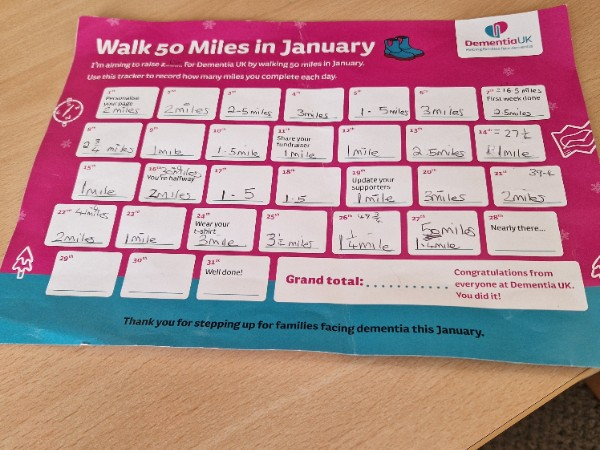 Walk 50 Miles in January
DementiaUK
I'm aiming to raise £......... for Dementia UK by walking 50 miles in January.
Use this tracker to record how many miles you complete each day.
1st Personalise your page 2 miles
2nd 2miles
3rd 2-5miles
4th 3miles
5th 1-5miles
6th 3miles
7th = 16.5 miles First week done 2.5miles
8th 2 3/4 miles
9th 1mile
10th 1-5mile
11th Share your fundraiser 1mile
12th 1mile
13th 2.5miles
14th = 27 1/4 1mile
15th 1mile
16th You're halfway! 2miles
17th 1-5
18th 1.5
19th Update your supporters 1mile
20th 3miles
21st 2miles
22nd 2miles
23rd 1mile
24th Wear your t-shirt 3mile
25th 3 1/2 miles
26th 47 3/4 1 1/4 mile
27th miles 1.4mile
28th Nearly there...
29th
30th
31st Well done!
Grand total: ...........
Congratulations from
everyone at Dementia UK.
You did it!
Thank you for stepping up for families facing dementia this January.